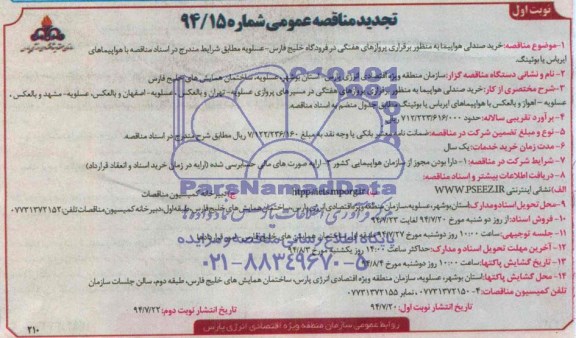 نوبت اول
تجدید مناقصه عمومی شماره ۹۴/۱۵
۱-موضوع مناقصه: خرید صندلی هواپیما به منظور برقراری پروازهای هفتگی در فرودگاه خلیج فارس- عسلویه مطابق شرایط مندرج در اسناد مناقصه با هواپیماهای
ایرباس یا بوئینگ.
۲- نام و نشانی دستگاه مناقصه گزار: سازمان منطقه ویژه اقتصادی انرژی پارس- استان بوشهر، عسلویه، ساختمان همایش های خلیج فارس
۳-شرح مختصری از کار: خرید صندلی هواپیما به منظور برقراری پروازهای هفتگی در مسیرهای پروازی عسلویه- تهران و بالعکس، عسلویه- اصفهان و بالعکس، عسلویه- مشهد و بالعکس،
عسلویه - اهواز و بالعکس با هواپیماهای ایرباس یا بوئینگ مطابق جدول منضم به اسناد مناقصه.
۴- برآورد تقریبی سالانه: حدود ۷۱۲/۲۲۳/۶۱۶/۰۰۰ ریال
۵- نوع و مبلغ تضمین شرکت در مناقصه: ضمانت نامه معتبر بانکی یا وجه نقد به مبلغ ۷/۱۲۲/۲۳۶/۱۶۰ ریال مطابق شرح مندرج در اسناد مناقصه.
۶- مدت زمان خرید خدمات: یک سال
۷- شرایط شرکت در مناقصه: ۱- دارا بودن مجوز از سازمان هواپیمایی کشور ۲- ارایه صورت های مالی حسابرسی شده (ارایه در زمان خرید اسناد و انعقاد قرارداد)
۸- دریافت اطلاعات بیشتر و اسناد مناقصه:
الف) نشانی اینترنتی WWW.PSEEZ.IR کمیسیون مناقصات
۹-محل تحویل اسناد و مدارک: استان بوشهر، عسلویه، سازمان منطقه ویژه اقتصادی انرژی پارس، ساختمان همایش های خلیج فارس، طبقه اول، دبیرخانه کمیسیون مناقصات تلفن ۰۷۷۳۱۳۷۲۱۵۲
۱۰- فروش اسناد: از روز دو شنبه مورخ ۹۴/۷/۲۰ لغایت ۹۴/۷/۲۳
۱۱- جلسه توجیهی: ساعت ۱۰:۰۰ روز دوشنبه مورخ ۹۴/۷/۲۷ ساختمان همایش های خلیج فارس
۱۲- آخرین مهلت تحویل اسناد و مدارک: حداکثر ساعت ۱۴:۰۰ روز یکشنبه مورخ ۹۴/۸/۳
۱۳- تاریخ گشایش پاکتها: ساعت ۱۰:۰۰ روز دوشنبه مورخ ۹۴/۸/۴
۱۴- محل گشایش پاکتها: استان بوشهر، عسلویه، سازمان منطقه ویژه اقتصادی انرژی پارس، ساختمان همایش های خلیج فارس، طبقه دوم، سالن جلسات سازمان
تلفن کمیسیون مناقصات: ۴-۰۷۷۳۱۳۷۲۱۵۰، نمابر ۰۷۷۳۱۳۷۲۱۵۵
تاریخ انتشار نوبت اول: ۹۴/۷/۲۰
تاریخ انتشار نوبت دوم: ۹۴/۷/۲۲
روابط عمومی سازمان منطقه ویژه اقتصادی انرژی پارس
۲۱۰
ParsNamadData
پایگاه اطلاع رسانی مناقصه و مزایده
۰۲۱-۸۸۳۴۹۶۷۰-۵